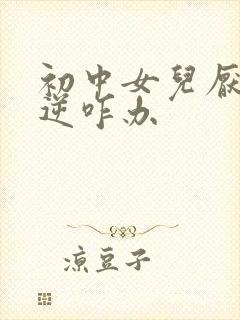 初中女兒
逆咋办
涼豆子